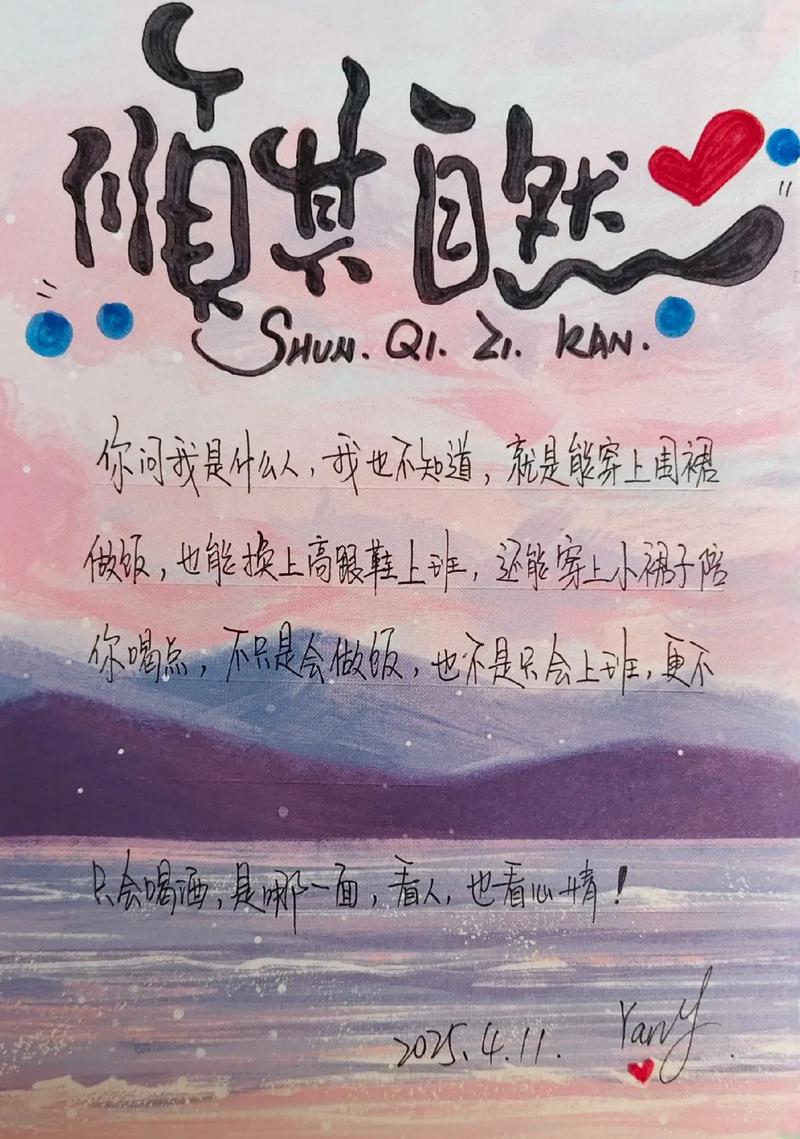 顺其自然
SHUN. QI. ZI. RAN.
你问我是什么人，我也不知道，就是能穿上围裙
做饭，也能换上高跟鞋上班，还能穿上小裙子陪
你喝点，不只是会做饭，也不是只会上班，更不
只会喝酒，是哪一面，看人，也看心情！
2025.4.11. YanY.